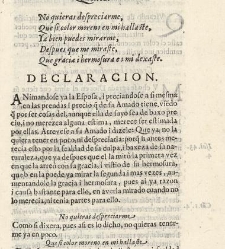 No quieras despreciarme,
Que si color moreno en mi hallaste,
Ya bien puedes mirarme,
Despues que me miraste,
Que gracia i hermosura en mi dexaste.
DECLARACION.
ANimandose ya la Esposa, i preciandose a si mesma
en las prendas i precio q̃ de su Amado tiene, viẽdo
q̃ por ser cosas del, aunque ella de suyo sea de baxo pre-
cio, i no merezca alguna estima, merece ser estimada
por ellas. Atrevese a su Amado i dizele: Que ya no la
quiera tener en poco ni despreciarla: porq̃ si antes
merecia ello por la fealdad de su culpa, i baxeza de su na-
turaleza; ya que despues que el la mirò la primera vez
en que la arreò con su gracia, i vistio de su hermosura,
que bien la puede ya mirar la segunda i mas vezes, au-
mentandole la gracia i hermosura, pues ai ya razon
i causa bastante para ello, en averla mirado quando no
lo merecia, ni tenia partes para ello.
No quieras despreciarme
Como si dixera, pues assi es lo dicho, no quieras tener-
me ya en poco.
Que si color moreno en mi hallaste